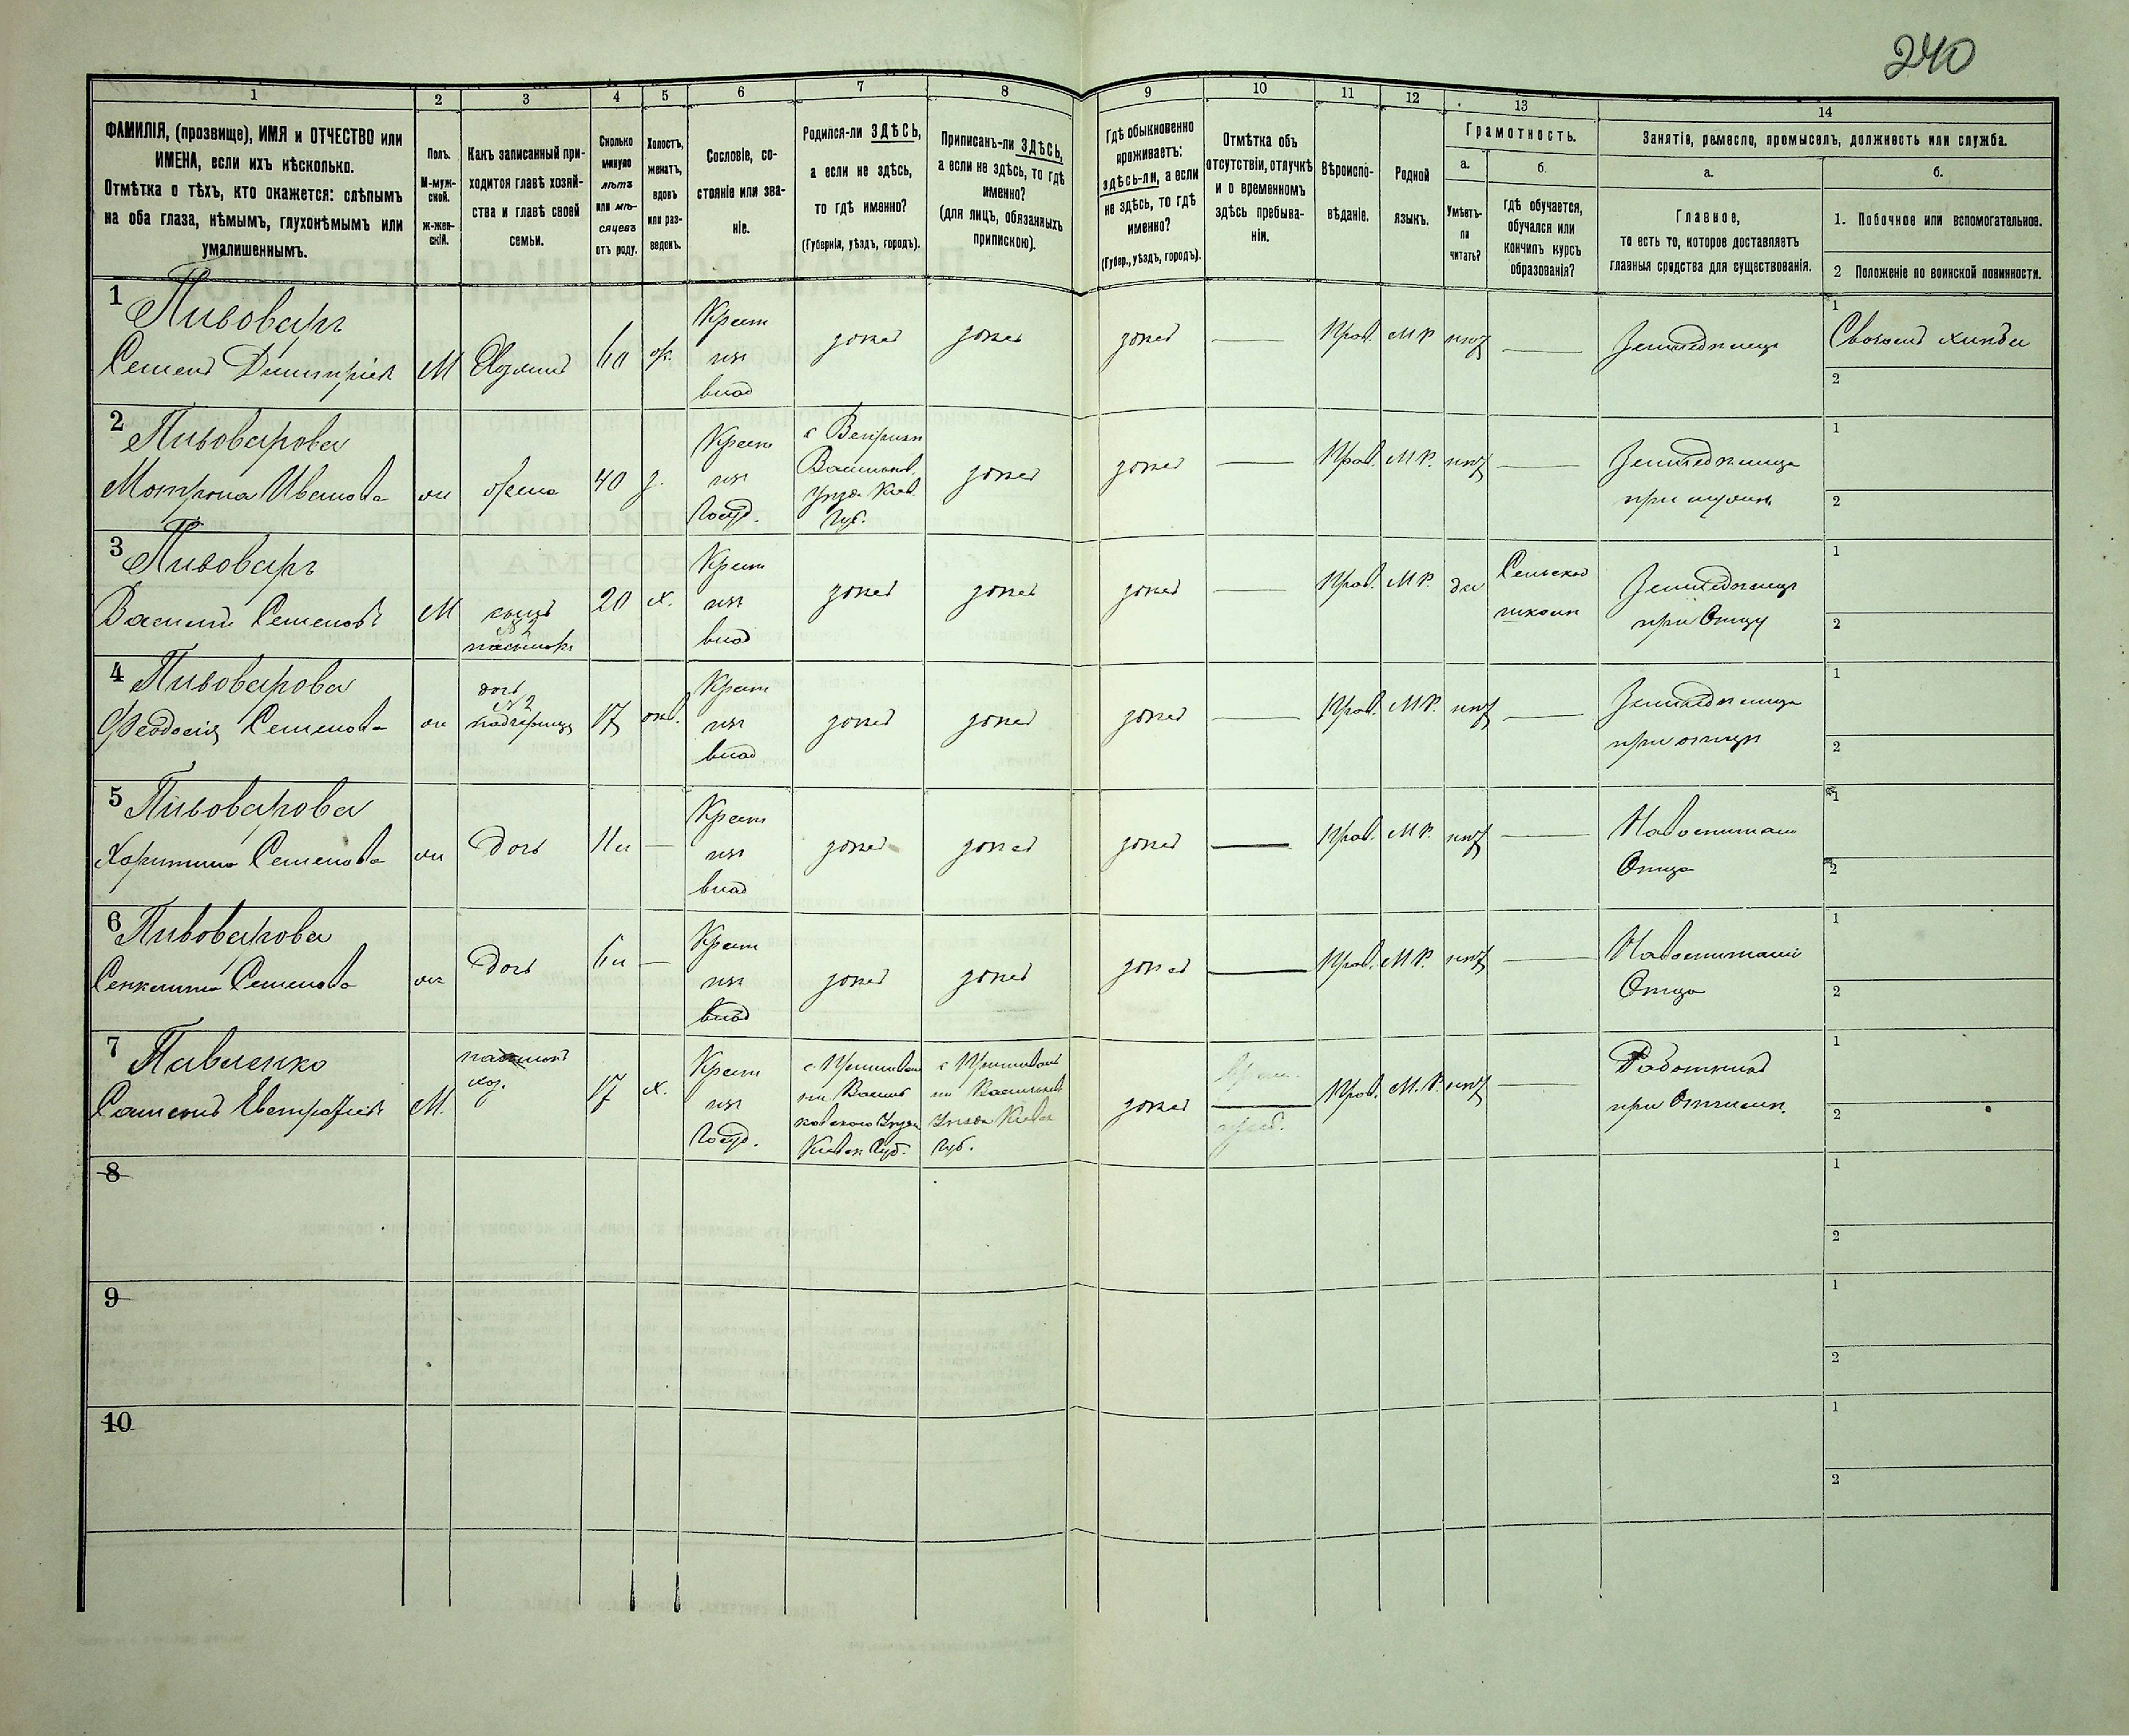 240
1 2 3 4 5 6 7 8 9 10 11 12 13 14
ФАМИЛІЯ, (прозвище), ИМЯ и ОТЧЕСТВО или
ИМЕНА, если ихъ нѣсколько.
Отмѣтка о тѣхъ, кто окажется: слѣпымъ
на оба глаза, нѣмымъ, глухонѣмымъ или
умалишеннымъ.
Полъ.
М-муж-
ской.
ж-жен-
скій.
Какъ записанный при-
ходится главѣ хозяй-
ства и главѣ своей
семьи.
Сколько
минуло
лѣтъ
или мѣ-
сяцевъ
отъ роду.
Холостъ,
женатъ,
вдовъ
или раз-
веденъ.
Сословіе, со-
стояніе или зва-
ніе.
Родился-ли ЗДѢСЬ,
а если не здѣсь,
то гдѣ именно?
(Губернія, уѣздъ, городъ).
Приписанъ-ли ЗДѢСЬ,
а если не здѣсь, то гдѣ
именно?
(для лицъ, обязанныхъ
припискою).
Гдѣ обыкновенно
проживаетъ:
здѣсь-ли, а если
не здѣсь, то гдѣ
именно?
(Губер., уѣздъ, городъ).
Отмѣтка объ
отсутствіи, отлучкѣ
и о временномъ
здѣсь пребыва-
ніи.
Вѣроиспо-
вѣданіе.
Родной
языкъ.
Грамотность.
а.
Умѣетъ-
ли
читать?
б.
гдѣ обучается,
обучался или
кончилъ курсъ
образованія?
Занятіе, ремесло, промыселъ, должность или служба.
а.
Главное,
то есть то, которое доставляетъ
главныя средства для существованія.
б.
1. Побочное или вспомогательное.
2 Положеніе по воинской повинности.
1 Пивоваръ
Семенъ Димитріевъ М Хозяинъ 60 ж. Крест
изъ
влад здѣсь здѣсь здѣсь — Прав. М Р нѣт — Земледѣлецъ
1
2
2 Пивоварова
Мотрона Иванова ж жена 40 з. Крест
изъ
Госуд.
с Веприкъ
Васильков.
Уѣзда Киев.
Губ.
здѣсь здѣсь — Прав. М Р. нѣт — Земледѣлица
при мужѣ
1
2
3 Пивоваръ
Василій Семеновъ М сынъ
№ 2
пасынокъ 20 х. Крест
изъ
влад здѣсь здѣсь здѣсь — Прав. М Р. да Сельской
школѣ Земледѣлецъ
при Отцу
1
2
4 Пивоварова
Феодосія Семенова ж дочь
№ 2
падчерица 17 дѣв. Крест
изъ
влад здѣсь здѣсь здѣсь — Прав. М Р. нѣт — Земледѣлица
при отцѣ
1
2
5 Пивоварова
Харитина Семенова ж Дочь — Крест
изъ
влад здѣсь здѣсь здѣсь — Прав. М Р. нѣт —
Отца
1
2
6 Пивоварова
Семенова ж Дочь — Крест
изъ
влад здѣсь здѣсь здѣсь — Прав. М Р. нѣт —
Отца
1
2
7 Павленко
Евстафіевъ М. пасынокъ
хоз. 17 х. Крест
изъ
Госуд.
Уѣзда
Губ.
Уѣзда
Губ.
здѣсь Прав. М. Р. нѣт — Работникъ
при Отчимѣ.
1
2
8
1
2
9
1
2
10
1
2